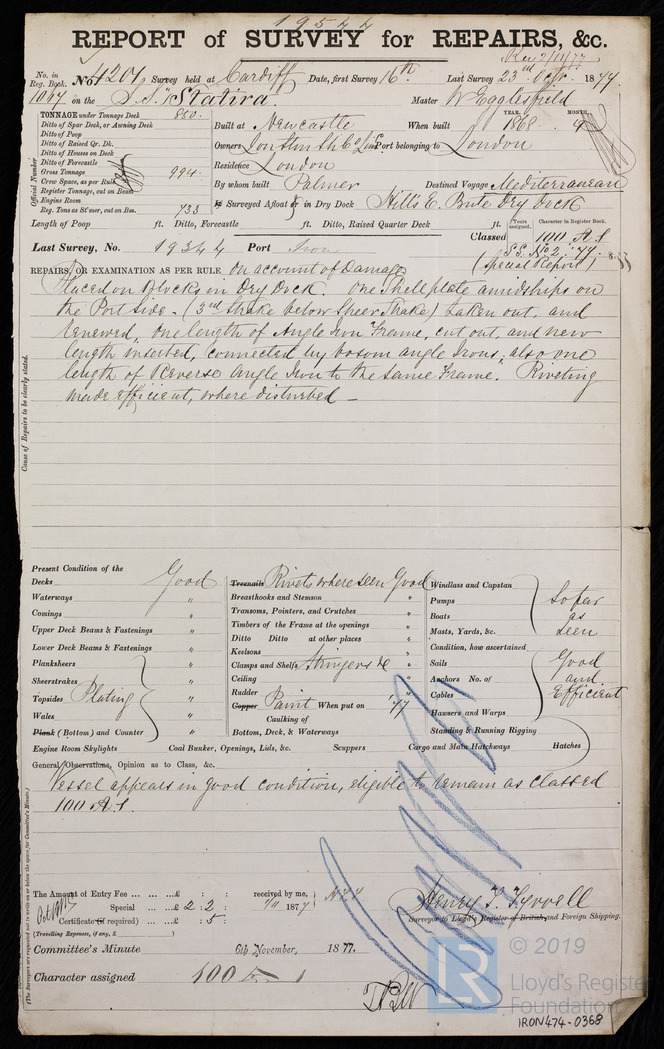 19544
REPORT of SURVEY for REPAIRS, &c.
Rec 2/11/77
No. in Reg. Book. No. 4201 Survey held at Cardiff Date, first Survey 16th Last Survey 23rd Octr. 1877
1017 on the S.S. "Statira" Master W Egglesfield
TONNAGE under Tonnage Deck 850.
Ditto of Spar Deck, or Awning Deck
Ditto of Poop
Ditto of Raised Qr. Dk.
Ditto of Houses on Deck
Ditto of Forecastle
Gross Tonnage 994.
Crew Space, as per Rule
Register Tonnage, cut on Beam
Engine Room
Reg. Tons as St'mer, cut on Bm. 733
Official Number
Built at Newcastle When built YEAR. 1868 MONTH 4
Owners Port belonging to London
Residence London
By whom built Palmer Destined Voyage Mediterranean
If Surveyed Afloat or in Dry Dock Hills E. Bute Dry Dock
Length of Poop ft. Ditto, Forecastle ft. Ditto, Raised Quarter Deck ft.
Years assigned. Character in Register Book.
Classed 100 A 1
S.S. No 2 '77
Last Survey, No. 19344 Port Iron
(Special Report)
REPAIRS, OR EXAMINATION AS PER RULE, on account of Damage
Placed on Blocks in Dry Dock. One Shell plate amidships on
the Port Side - (3rd Strake below Sheer Strake) taken out, and
Renewed, one length of Angle Iron Frame, cut out, and new
length inserted, connected by bosom angle Irons, also one
length of Reverse Angle Iron to the same Frame. Riveting
made efficient, where disturbed -
Cause of Repairs to be clearly stated.
Present Condition of the
Decks Good
Waterways "
Comings "
Upper Deck Beams & Fastenings "
Lower Deck Beams & Fastenings "
Planksheers "
Sheerstrakes "
Topsides Plating "
Wales "
Plank (Bottom) and Counter "
Engine Room Skylights Coal Bunker, Openings, Lids, &c. Scuppers Cargo and Main Hatchways Hatches
Treenails Rivets where seen Good
Breasthooks and Stemson "
Transoms, Pointers, and Crutches "
Timbers of the Frame at the openings "
Ditto Ditto at other places "
Keelsons "
Clamps and Shelfs Stringers &c "
Ceiling "
Rudder "
Copper Paint When put on '77
Caulking of
Bottom, Deck, & Waterways "
Windlass and Capstan
Pumps
Boats
Masts, Yards, &c.
So far as seen
Condition, how ascertained
Sails
Anchors No. of
Cables
Hawsers and Warps
Standing & Running Rigging
Good and Efficient
General Observations, Opinion as to Class, &c.
Vessel appears in good condition, eligible to remain as Classed
100 A 1.
The Amount of Entry Fee ... ... ...£ : : received by me,
Special ... ...£ 2 : 2 : 1877
Certificate (if required) ...£ : 5 :
(Travelling Expenses, if any, £ )
Henry P. Tyrrell
Surveyor to Lloyd's Register of British and Foreign Shipping.
Committee's Minute 6th November, 1877.
Character assigned 100 A 1
© 2019
LR
Lloyd's Register
Foundation
IRON474-0368